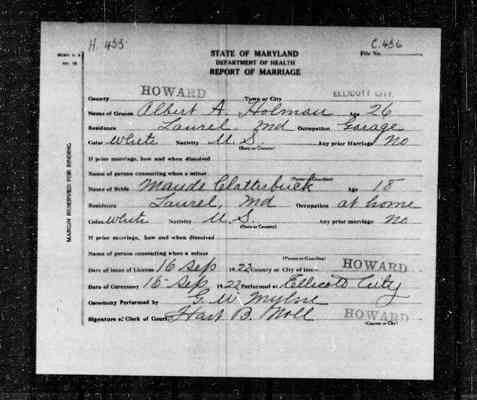 H. 455 C. 456
STATE OF MARYLAND
DEPARTMENT OF HEALTH
REPORT OF MARRIAGE
File No.
County HOWARD Town or City ELLICOTT CITY
Name of Groom Albert A. Holman Age 26
Residence Laurel Md Occupation Garage
Color White Nativity U. S. Any prior Marriage No
(State or Country)
If prior marriage, how and when dissolved
Name of person consenting when a minor
(Parent or Guardian)
Name of Bride Maude Clatterbuck Age 18
Residence Laurel, Md Occupation at home
Color White Nativity U. S. Any prior marriage No
(State or Country)
If prior marriage, how and when dissolved
Name of person consenting when a minor
(Parent or Guardian)
Date of Issue of License 16 Sep 1922 County or City of Issue HOWARD
Date of Ceremony 16 Sep 1922 Performed at Ellicott City
Ceremony Performed by G. W.
Signature of Clerk of Court Hart B. Noll HOWARD
(County or City)
MARGIN RESERVED FOR BINDING